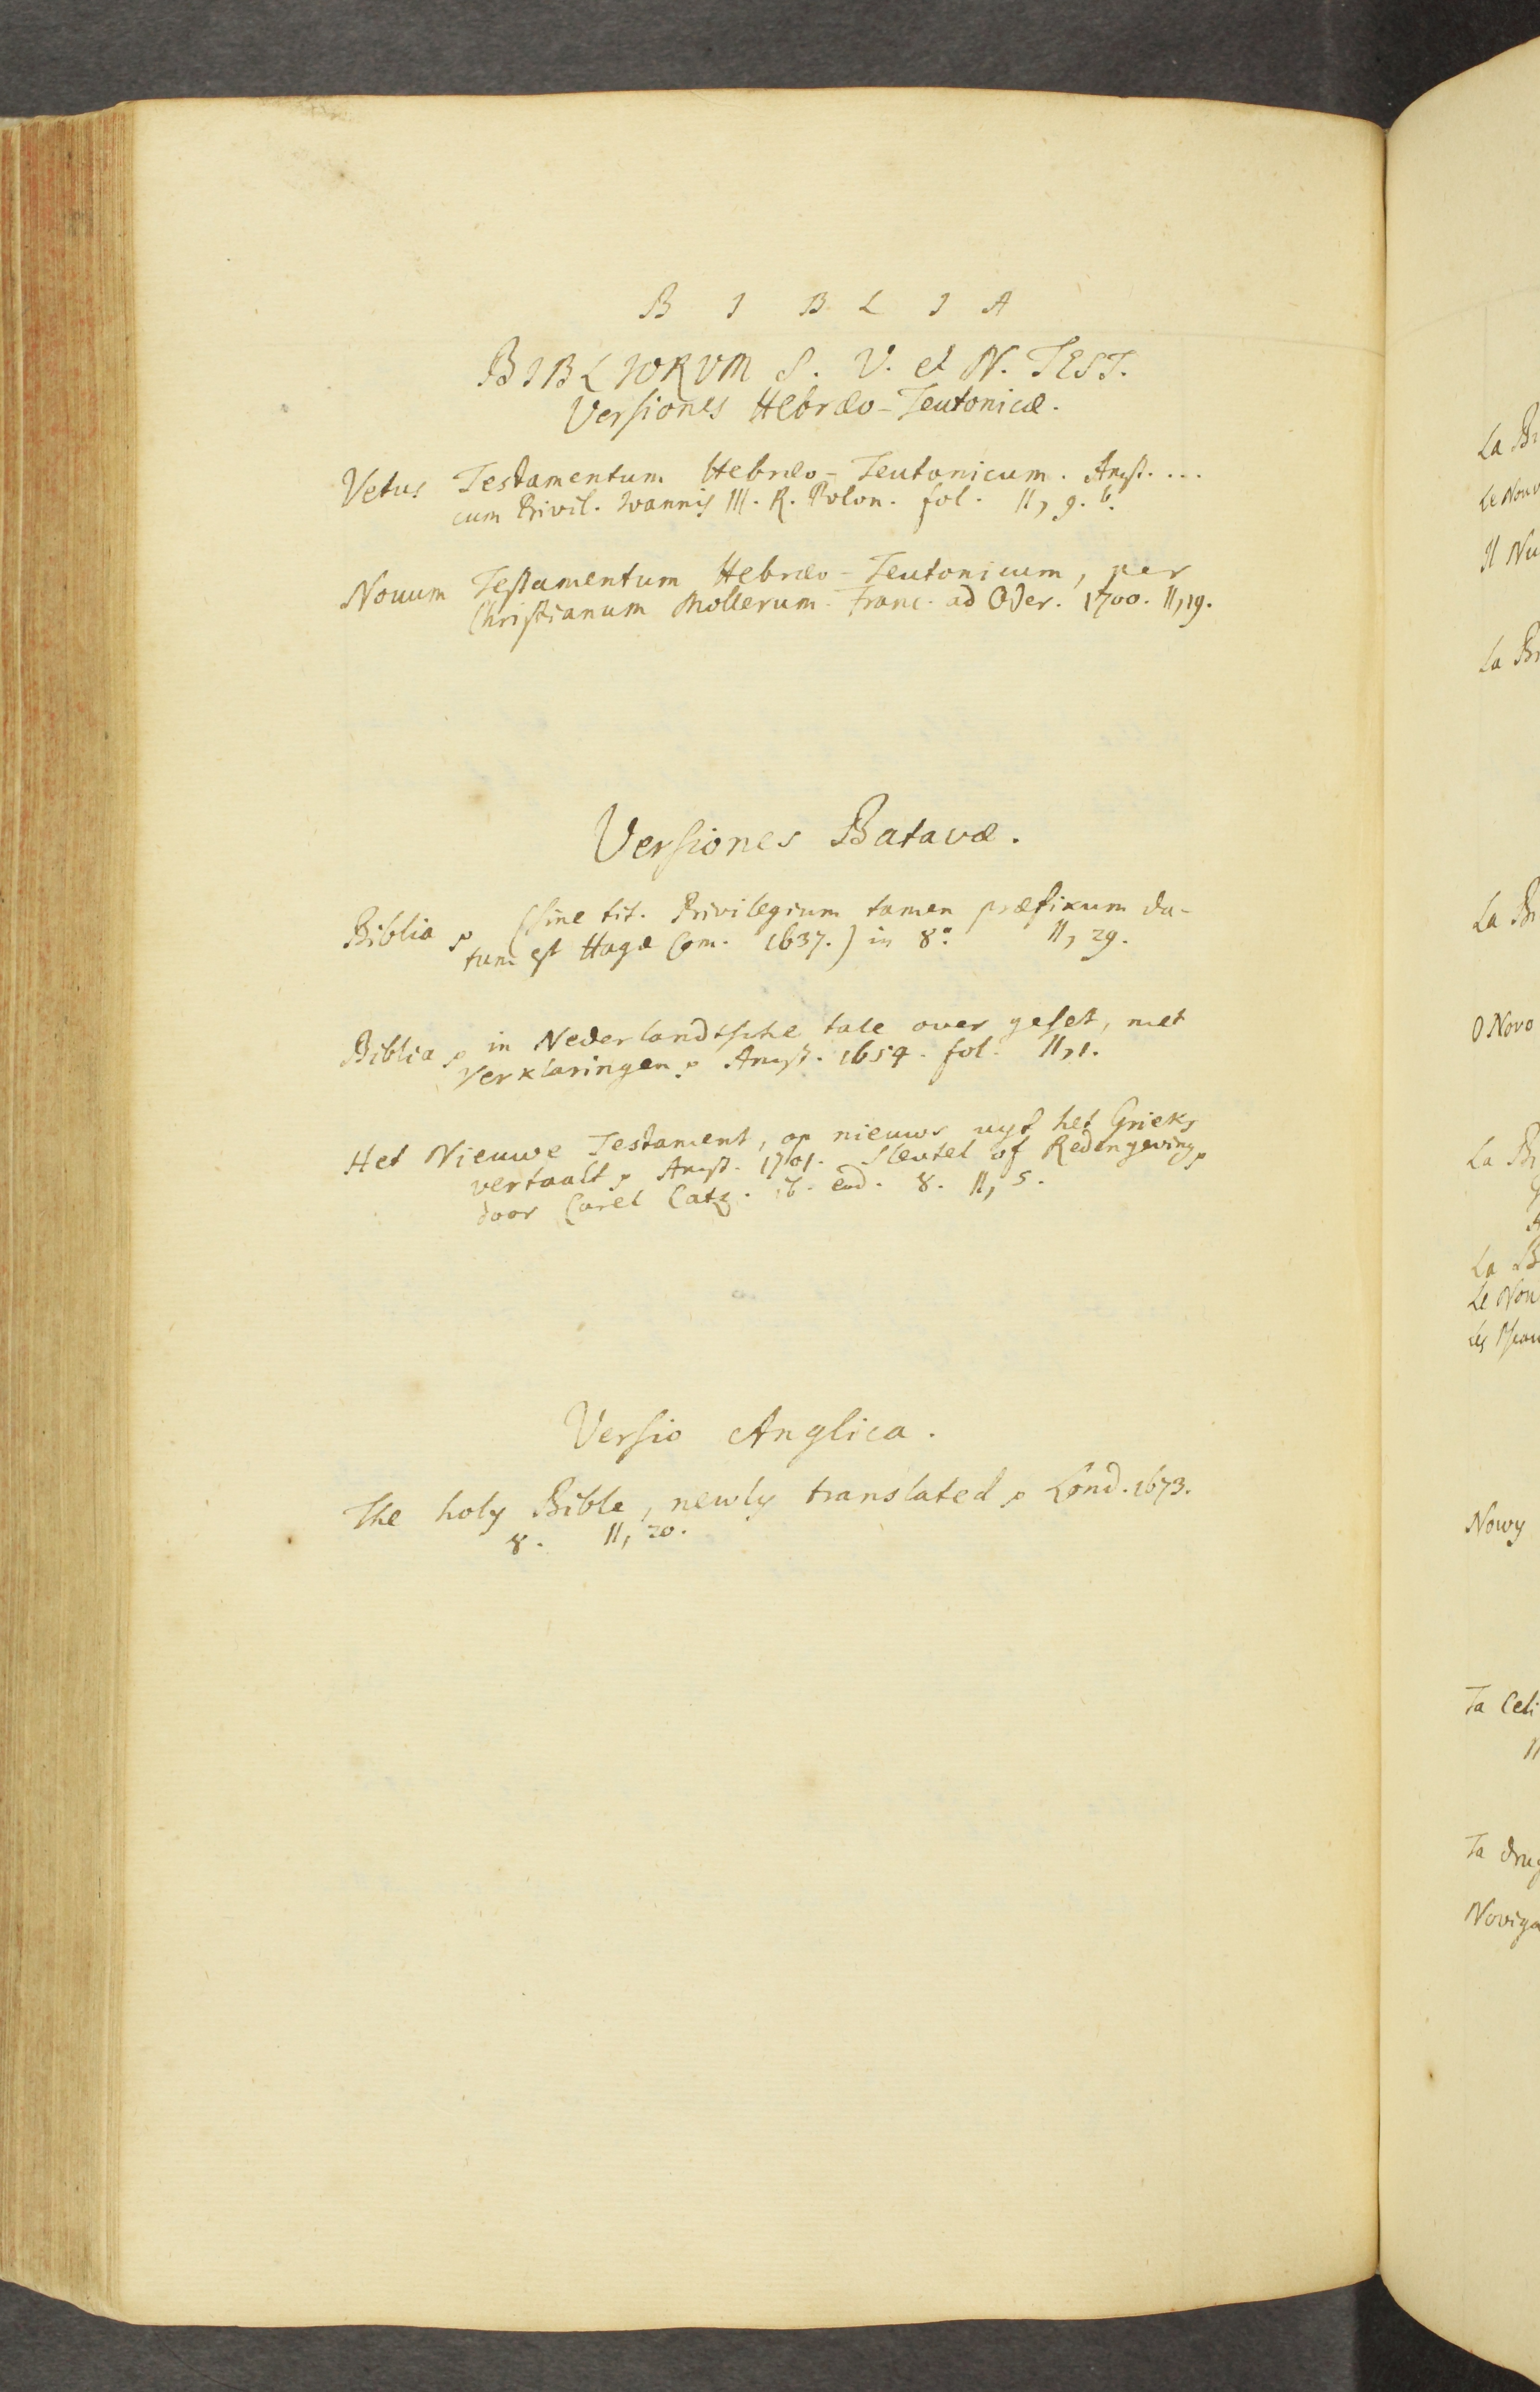 B I B L I A
BIBLIORVM S. V. et N. TEST.
Versiones Hebræo-Teutonicæ.
Vetus Testamentum Hebræo-Teutonicum. Amst. ...
cum Privil. Ioannis III. R. Polon. fol. II, 9. b.
Nouum Testamentum Hebræo-Teutonicum, per
Christianum Mollerum. Franc. ad Oder. 1700. II, 19.
Versiones Batavæ.
Biblia (sine tit. Privilegium tamen præfixum da-
tum est Hagæ Com. 1637.) in 8º. II, 29.
Biblia in Nederlandtsche tale over geset, met
Verklaringen Amst. 1654. fol. II, 1.
Het Nieuwe Testament, op nieuws uyt het Grieks
vertaalt Amst. 1701. Sleutel of Redengeving
door Carel Catz. ib. eod. 8. II, 5.
Versio Anglica.
The holy Bible, newly translated Lond. 1673.
8. II, 20.
La
Le Nouv
Il Nu
La
La
O Novo
La
La
Le Nou
Les
Nowy
Ta Celi
Ta drug
Noviga